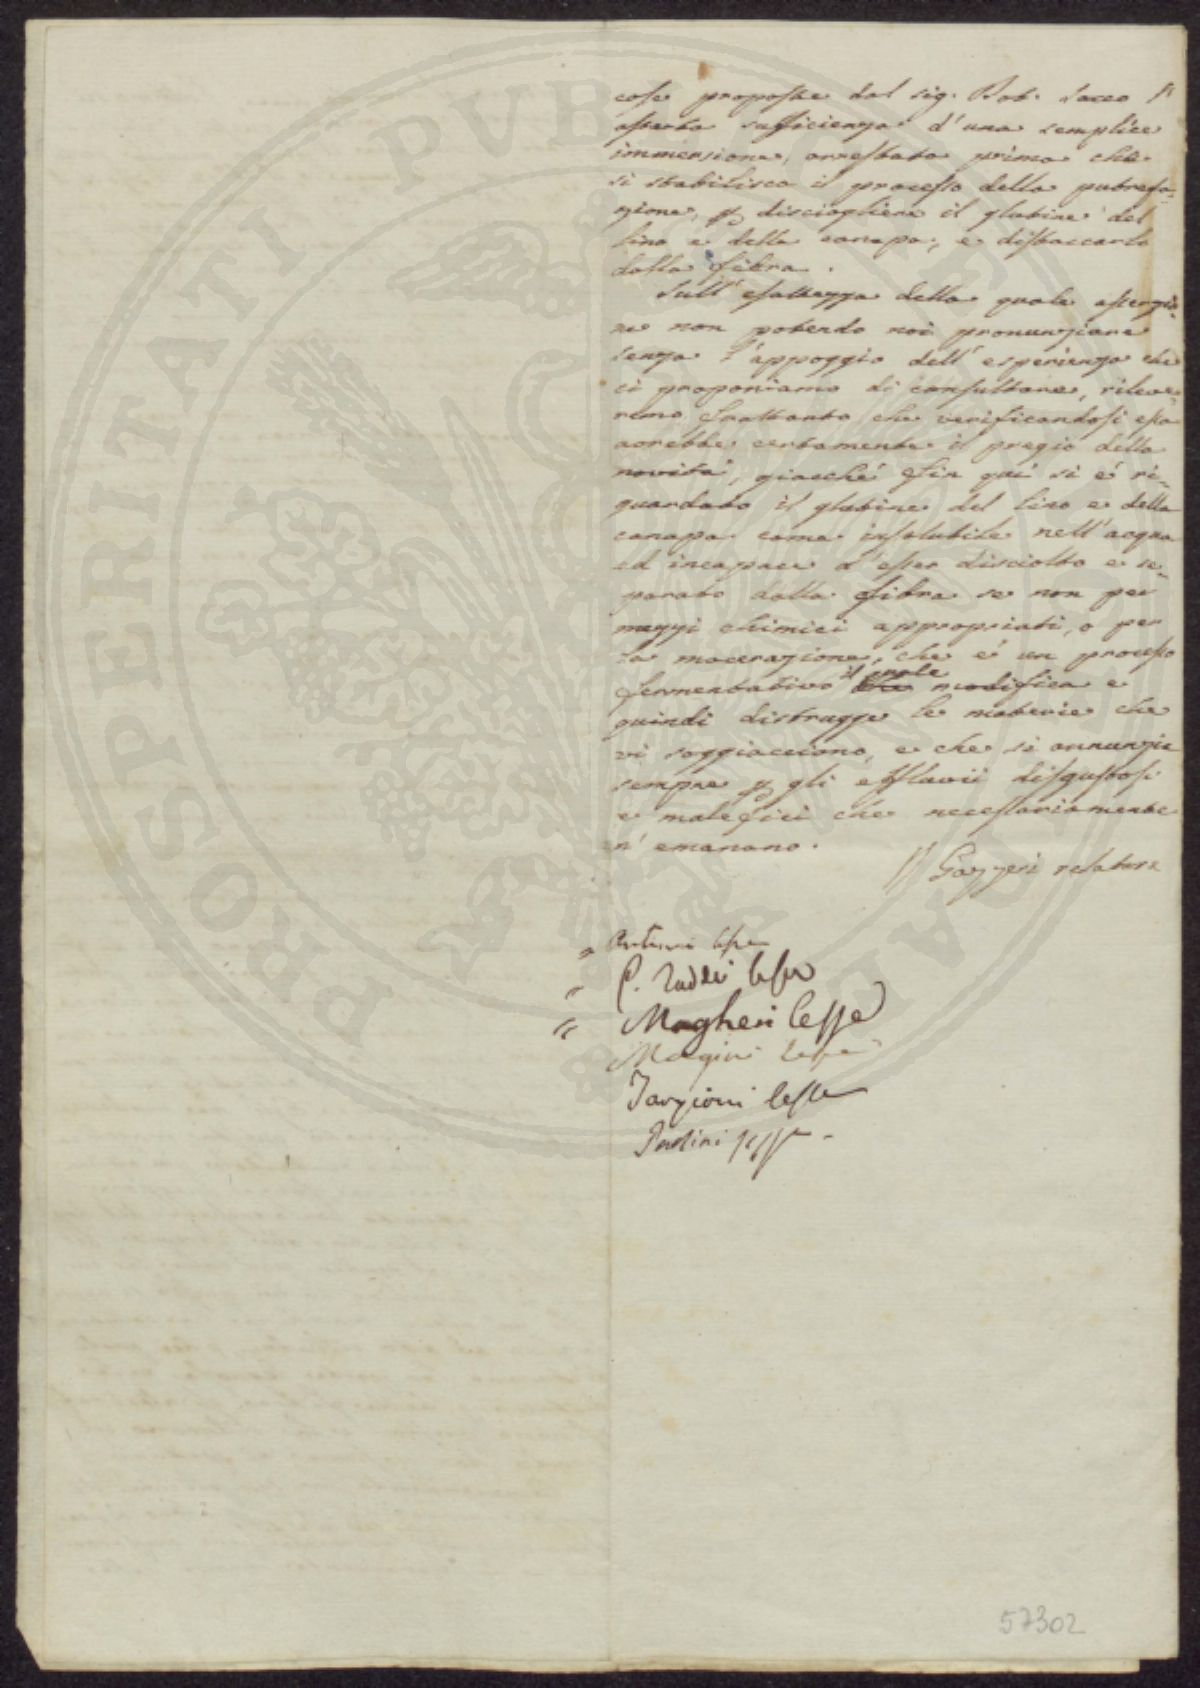 cose proposte dal sig. Dot. Sacco l'
asserta sufficienza d'una semplice
immersione, arrestata prima che
si stabilisca il processo della putrefa-
zione, p disciogliere il glutine del
lino e della canapa, e distaccarlo
dalla fibra.
Sull'esattezza della quale asserzio-
ne non potendo noi pronunziare
senza l'appoggio dell'esperienza che
ci proponiamo di consultare, rileve-
remo frattanto che verificandosi essa
avrebbe certamente il pregio della
novità, giacchè fin qui si è ri-
guardato il glutine del lino e della
canapa come insolubile nell'acqua
ed incapace d'esser disciolto e se-
parato dalla fibra se non per
mezzi chimici appropriati, o per
la macerazione, che è un processo
fermentativo il quale modifica e
quindi distrugge le materie che
vi soggiacciono, e che si annunzia
sempre p gli effluvii disgustosi
e malefici che necessariamente
n'emanano.
Gazzeri relatore
Antoni
G. Taddei
Magheri
Magini
Targioni
PROSPERITATI PVBLICAE
57302